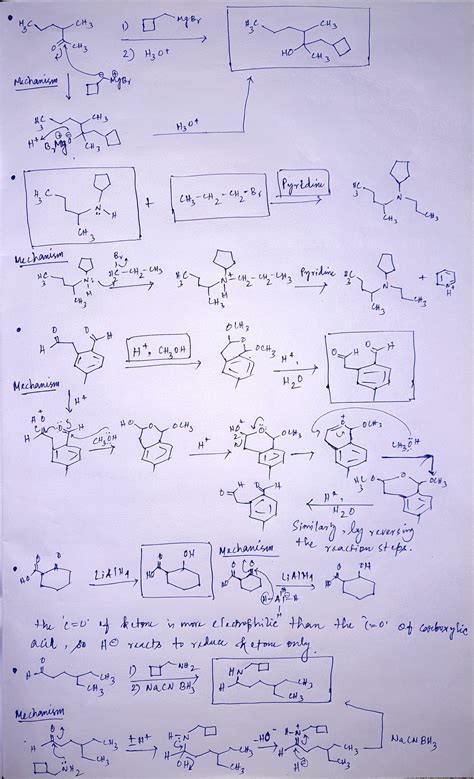 H₃C CH₃ 1) MgBr H₃C CH₃
O CH₃ 2) H₃O⁺ HO CH₃
Mechanism MgBr
H₃C CH₃ H₃O⁺
H⁺ BrMgO CH₃
H₃C N H CH₃ + CH₃-CH₂-CH₂-Br Pyridine H₃C N CH₃ CH₃
Mechanism
H₃C N: H CH₃ Br H₂C-CH₂-CH₃ H₃C N⁺-CH₂-CH₂-CH₃ H CH₃ Pyridine H₃C N CH₃ CH₃ + N⁺ H
H O O H H⁺, CH₃OH OCH₃ O OCH₃ H⁺, H₂O O H O H
Mechanism H⁺
CH₃OH HO O OCH₃ H⁺ OCH₃ OCH₃ CH₃OH
H₃CO O OCH₃
H⁺, H₂O
Similarly, by reversing
the reaction steps.
HO O O LiAlH₄ HO O OH Mechanism HO O O LiAlH₄ HO O OH
H-Al-H
the 'C=O' of ketone is more electrophilic than the 'C=O' of carboxylic
acid, so H⊖ reacts to reduce ketone only.
H O CH₃ CH₃ 1) NH₂ HN H CH₃ CH₃
2) NaCNBH₃
Mechanism
H O CH₃ CH₃ NH₂ ±H⁺ CH₃ CH₃ -HO⁻ CH₃ CH₃ NaCNBH₃